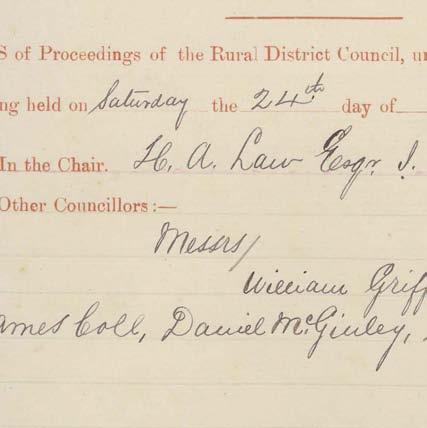 S of Proceedings of the Rural District Council, u
ng held on Saturday the 24th day of
In the Chair. H. A. Law Esqr J.
Other Councillors :—
Messrs/
William Griff
ames Coll, Daniel McGinley,